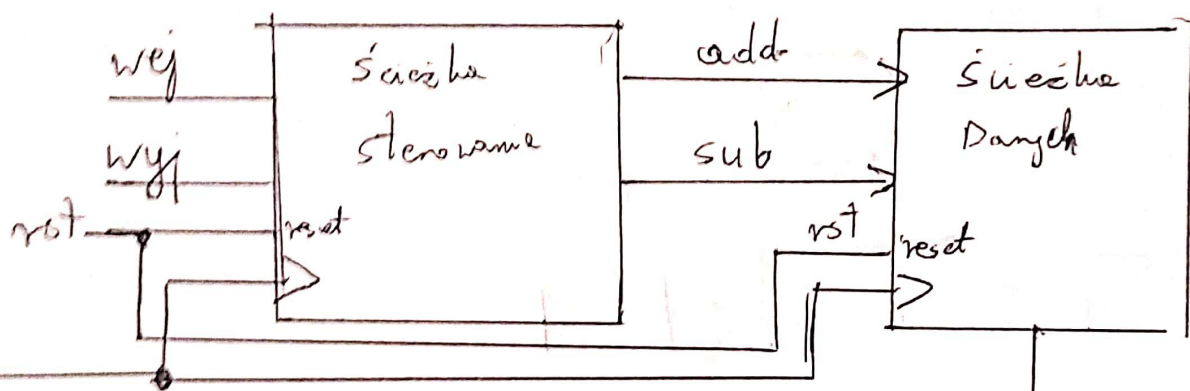 wej
wyj
rst
Ścieżka
sterowania
reset
add
sub
rst
Ścieżka
Danych
reset